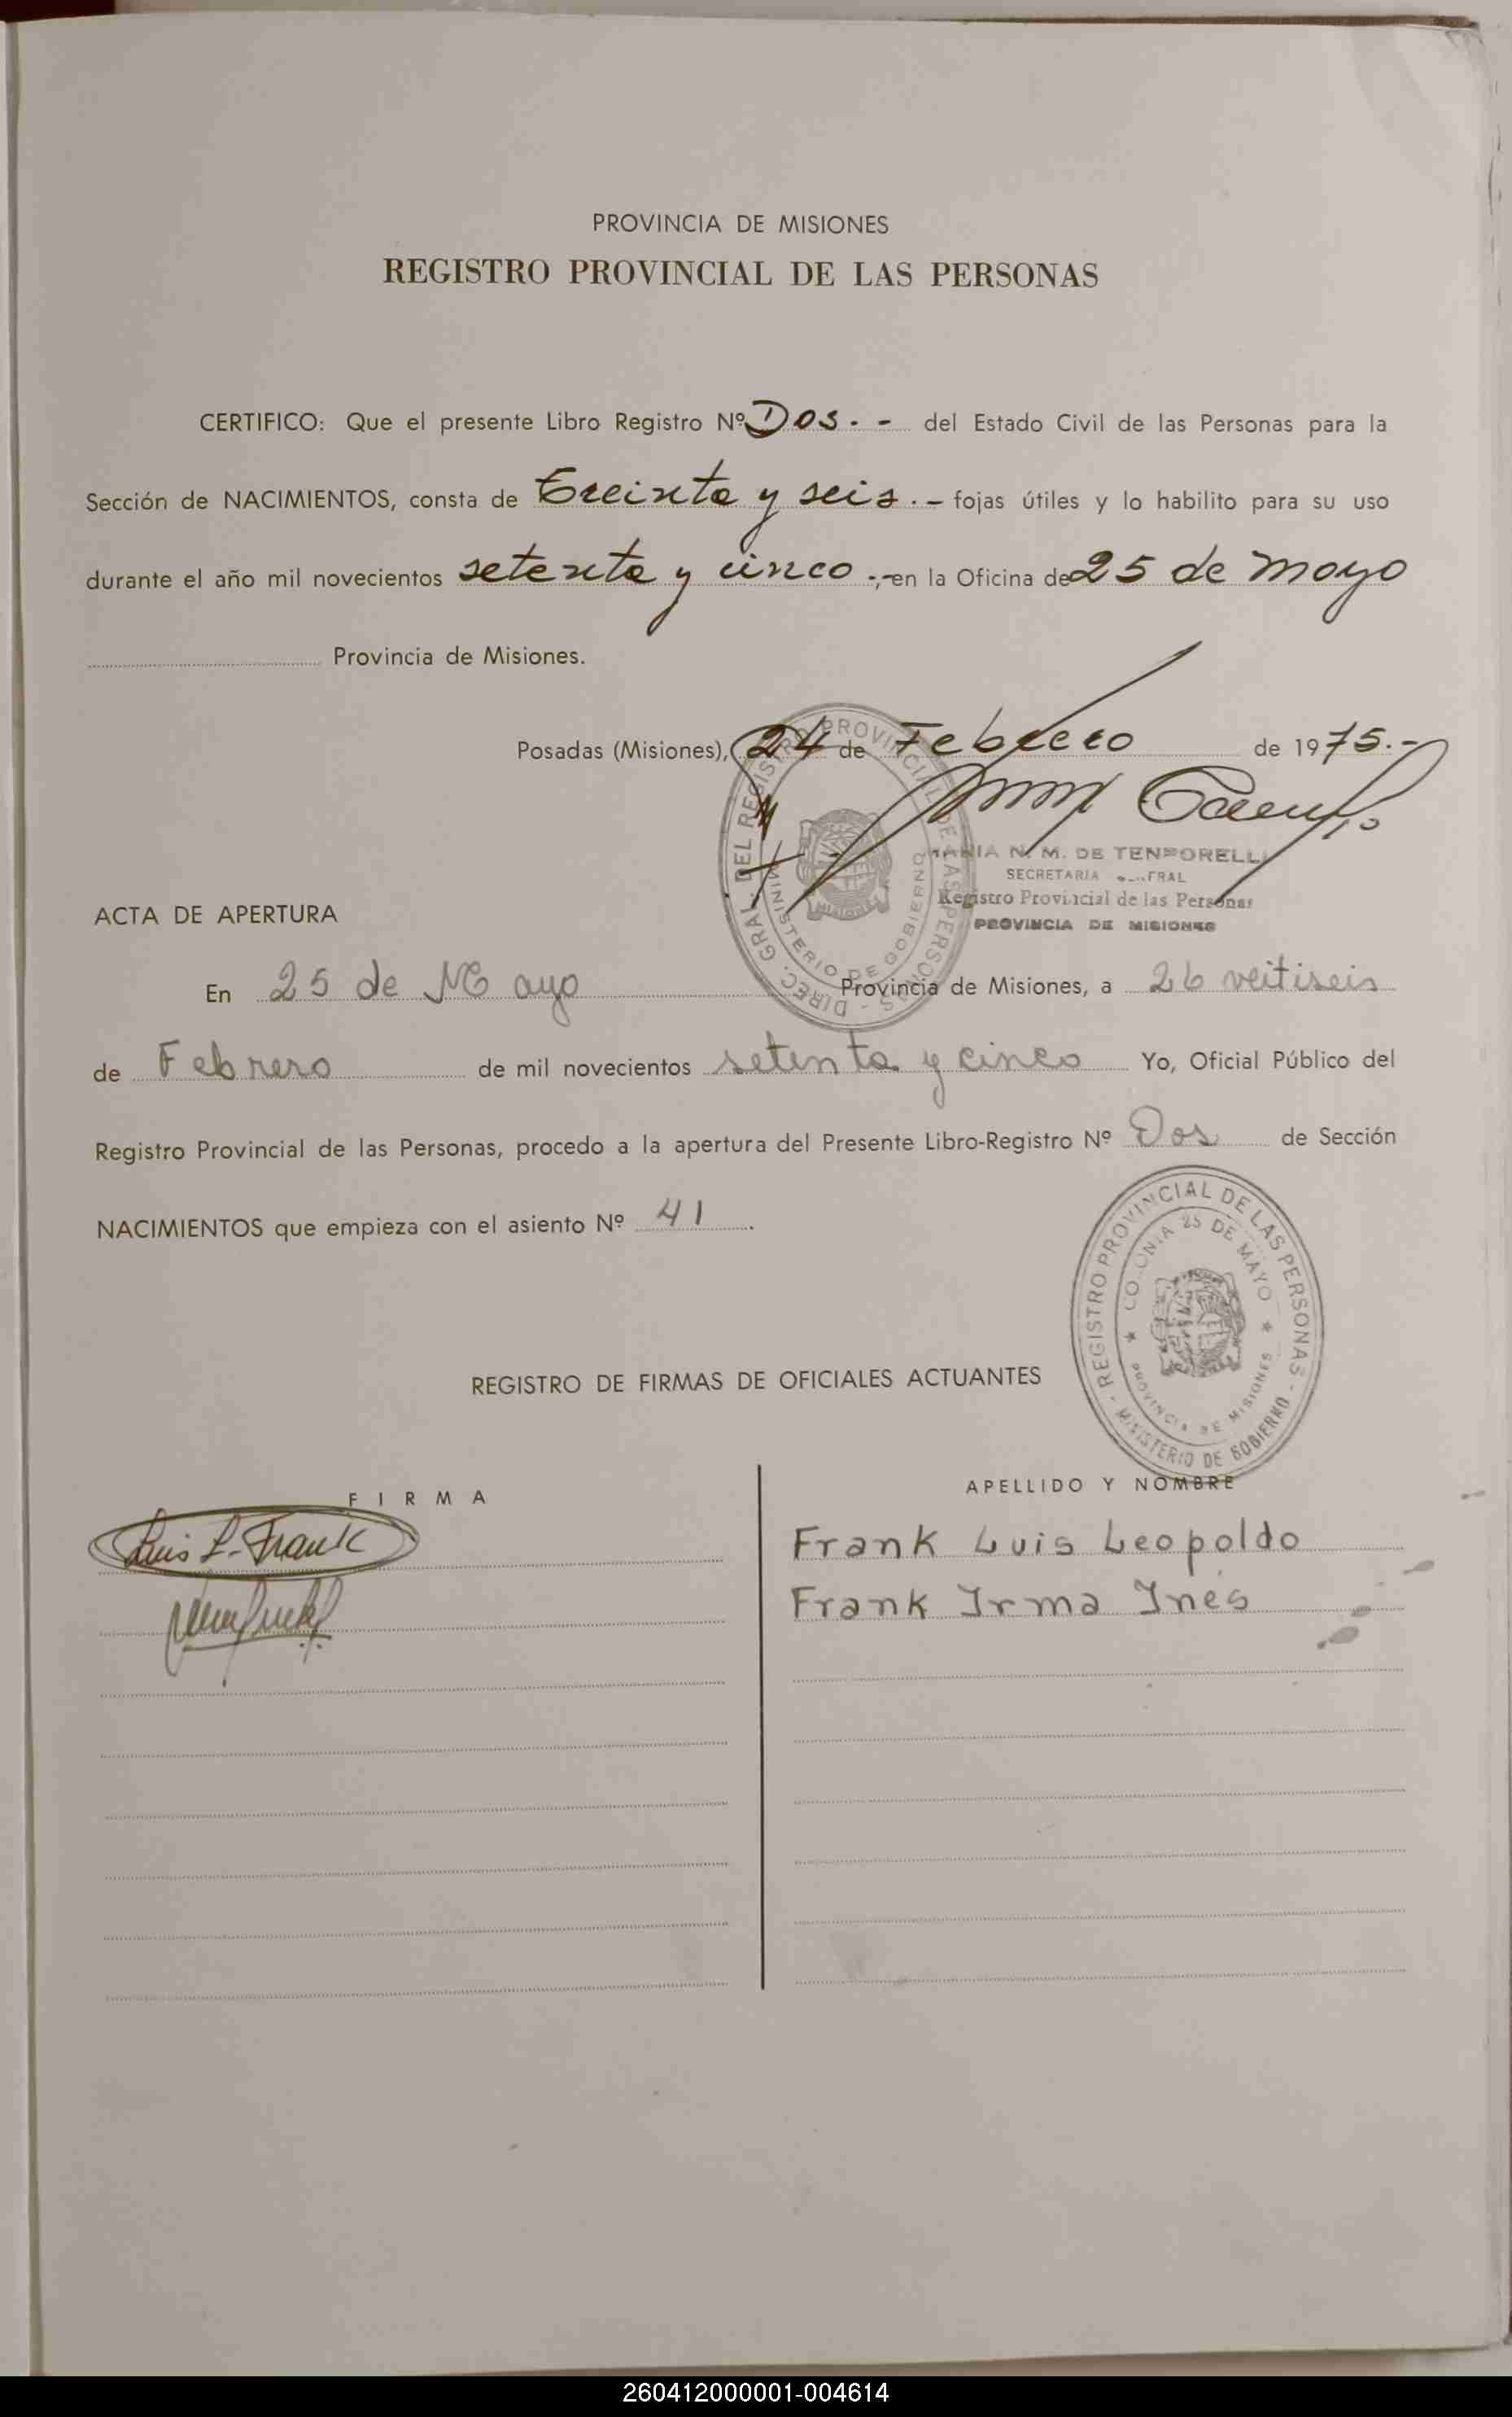 PROVINCIA DE MISIONES
REGISTRO PROVINCIAL DE LAS PERSONAS
CERTIFICO: Que el presente Libro Registro Nº Dos. - del Estado Civil de las Personas para la
Sección de NACIMIENTOS, consta de treinta y seis. - fojas útiles y lo habilito para su uso
durante el año mil novecientos setenta y cinco.- en la Oficina de 25 de mayo
Provincia de Misiones.
Posadas (Misiones), 24 de Febrero de 1975.-
DIREC. GRAL. DEL REGISTRO PROVINCIAL DE LAS PERSONAS -
MINISTERIO DE GOBIERNO
MISIONES
MARIA N. M. DE TEMPORELLI
SECRETARIA GENERAL
Registro Provincial de las Personas
PROVINCIA DE MISIONES
ACTA DE APERTURA
En 25 de Mayo Provincia de Misiones, a 26 veitiseis
de Febrero de mil novecientos setenta y cinco Yo, Oficial Público del
Registro Provincial de las Personas, procedo a la apertura del Presente Libro-Registro Nº Dos de Sección
NACIMIENTOS que empieza con el asiento Nº 41.
- REGISTRO PROVINCIAL DE LAS PERSONAS -
MINISTERIO DE GOBIERNO
★ COLONIA 25 DE MAYO ★
PROVINCIA DE MISIONES
REGISTRO DE FIRMAS DE OFICIALES ACTUANTES
FIRMA APELLIDO Y NOMBRE
Luis L. Frank Frank Luis Leopoldo
Frank Irma Inés
260412000001-004614